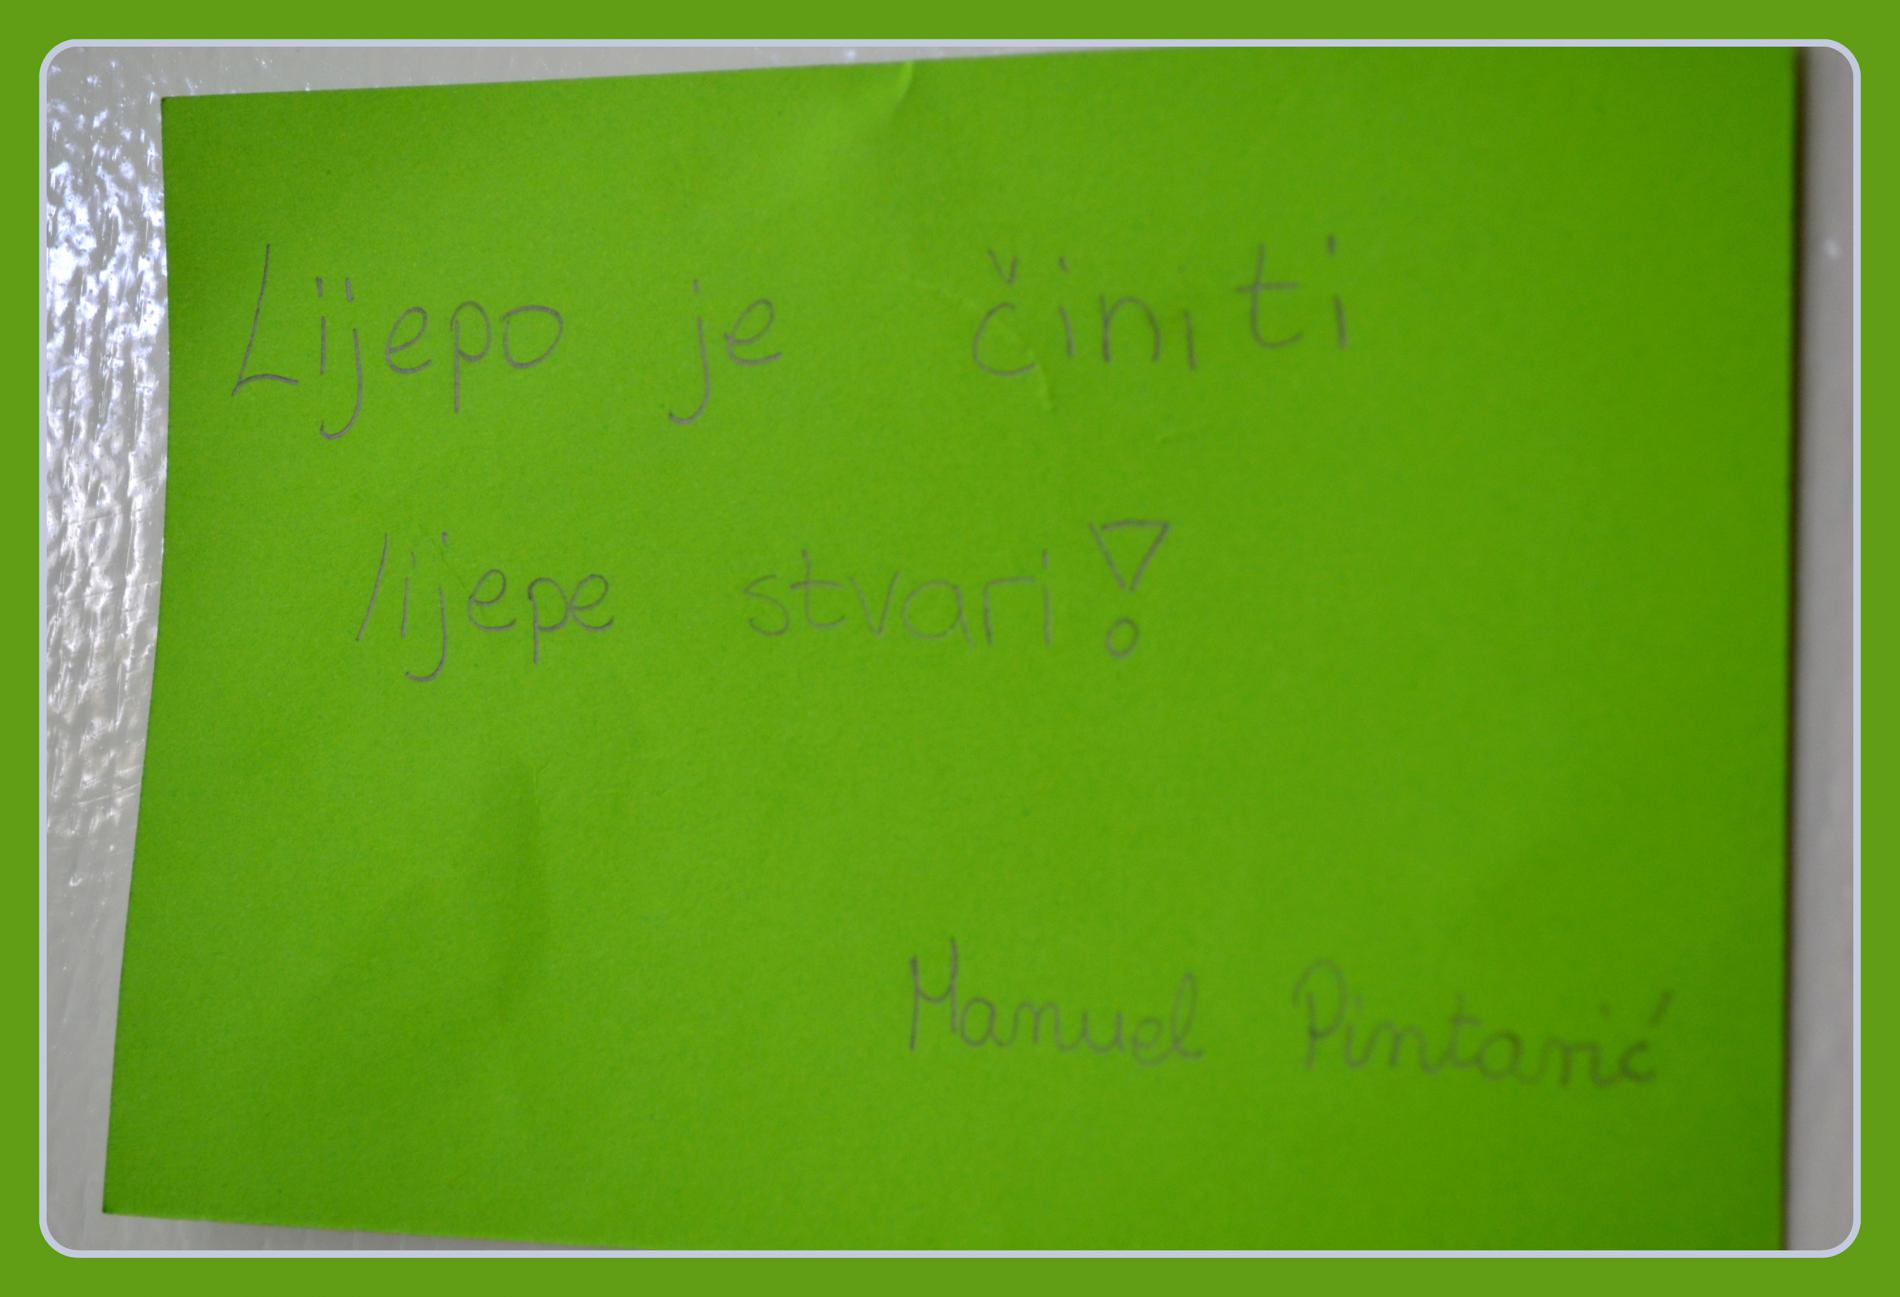 Lijepo je činiti
lijepe stvari!
Manuel Pintarić